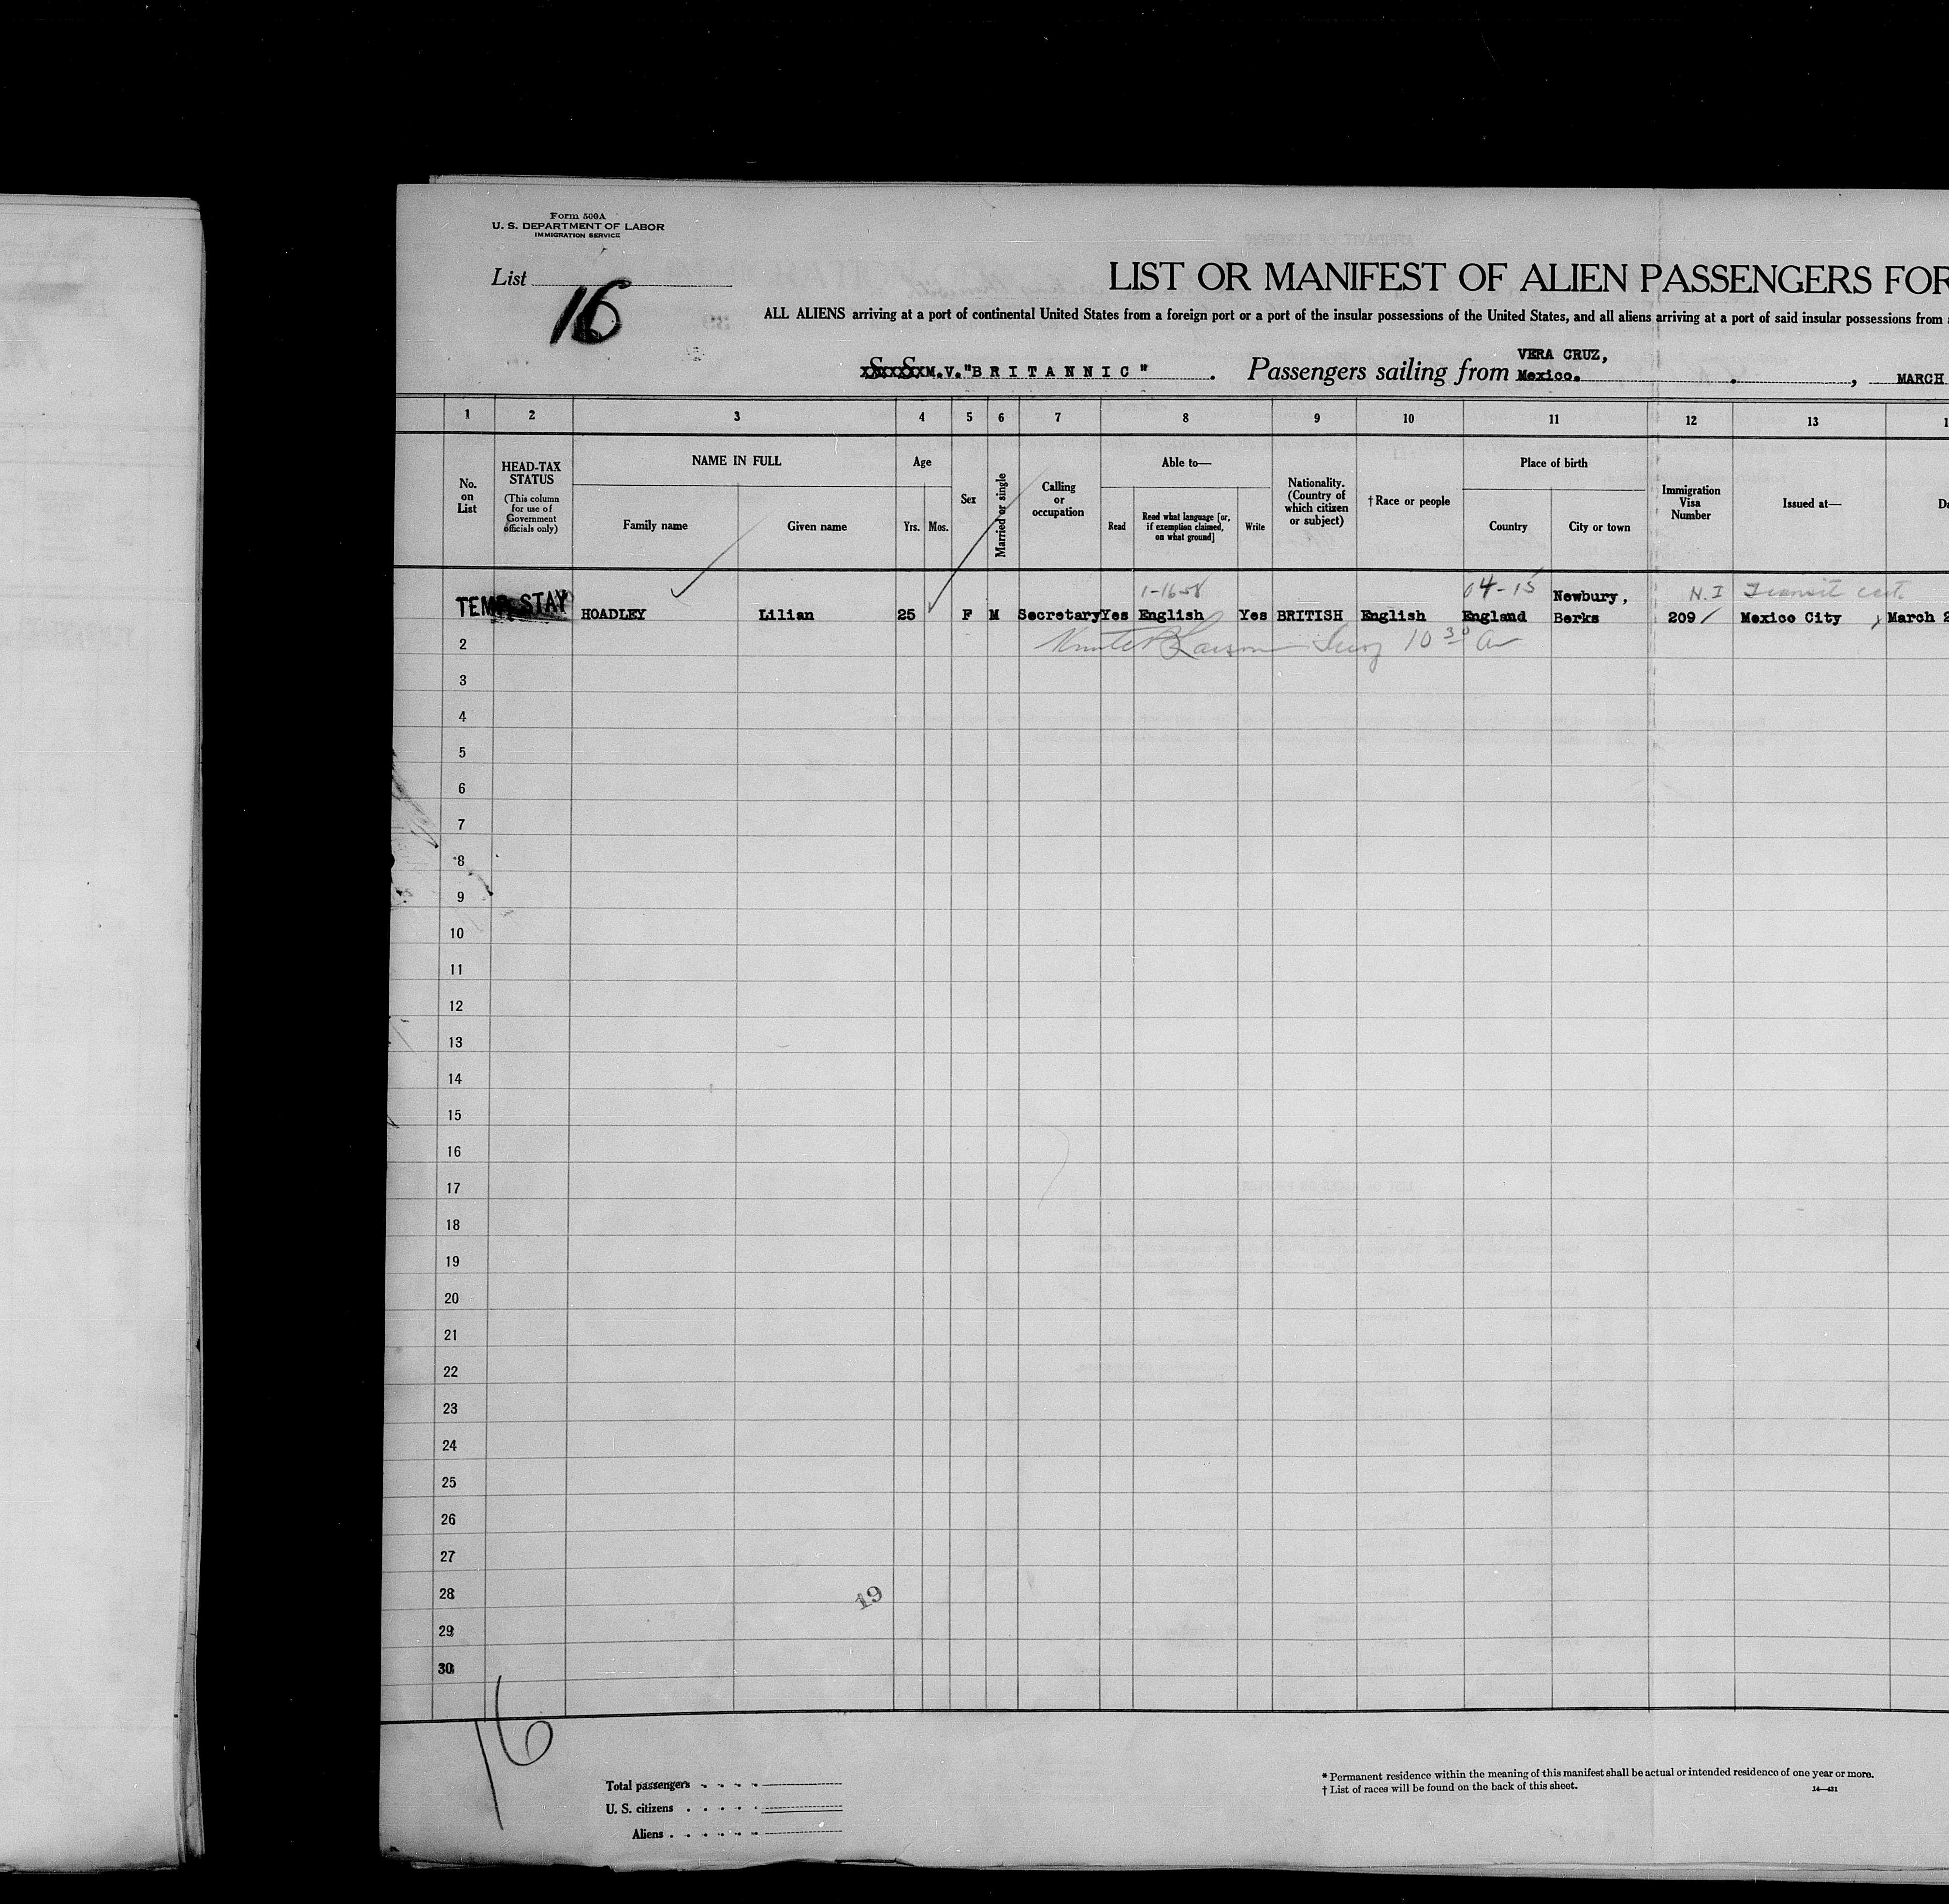 Form 500A
U. S. DEPARTMENT OF LABOR
IMMIGRATION SERVICE
List
16
LIST OR MANIFEST OF ALIEN PASSENGERS FOR
ALL ALIENS arriving at a port of continental United States from a foreign port or a port of the insular possessions of the United States, and all aliens arriving at a port of said insular possessions from
M.V."BRITANNIC" . Passengers sailing from VERA CRUZ, Mexico. , MARCH
1 2 3 4 5 6 7 8 9 10 11 12 13
No. on List
HEAD-TAX STATUS
(This column for use of Government officials only)
NAME IN FULL
Family name
Given name
Age
Yrs. Mos.
Sex
Married or single
Calling or occupation
Able to—
Read
Read what language [or, if exemption claimed, on what ground]
Write
Nationality. (Country of which citizen or subject)
† Race or people
Place of birth
Country
City or town
Immigration Visa Number
Issued at—
1-16-58
04-15
N.I Transit cert.
TEMP. STAY HOADLEY Lilian 25 F M Secretary Yes English Yes BRITISH English England Newbury, Berks 209/ Mexico City March 2
10 30 a
2
3
4
5
6
7
8
9
10
11
12
13
14
15
16
17
18
19
20
21
22
23
24
25
26
27
28
29
30
19
16
Total passengers
U. S. citizens
Aliens
* Permanent residence within the meaning of this manifest shall be actual or intended residence of one year or more.
† List of races will be found on the back of this sheet.
14—421